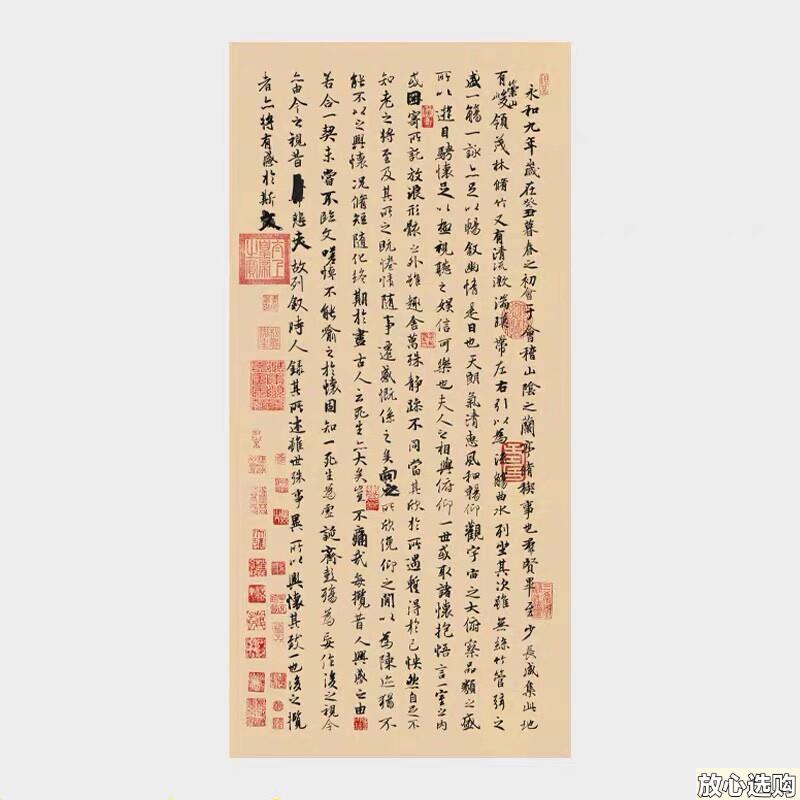 永和九年歲在癸丑暮春之初會于會稽山陰之蘭亭脩稧事也羣賢畢至少長咸集此地
有崇山峻領茂林脩竹又有清流激湍暎帶左右引以為流觴曲水列坐其次雖無絲竹管弦之
盛一觴一詠亦足以暢叙幽情是日也天朗氣清惠風和暢仰觀宇宙之大俯察品類之盛
所以遊目騁懷足以極視聽之娛信可樂也夫人之相與俯仰一世或取諸懷抱悟言一室之內
或因寄所託放浪形骸之外雖趣舍萬殊靜躁不同當其欣於所遇蹔得於己怏然自足不
知老之將至及其所之既惓情隨事遷感慨係之矣向之所欣俛仰之閒以為陳迹猶不
能不以之興懷況脩短隨化終期於盡古人云死生亦大矣豈不痛哉每攬昔人興感之由
若合一契未嘗不臨文嗟悼不能喻之於懷固知一死生為虛誕齊彭殤為妄作後之視今
亦由今之視昔悲夫故列叙時人錄其所述雖世殊事異所以興懷其致一也後之攬
者亦將有感於斯文
放心选购